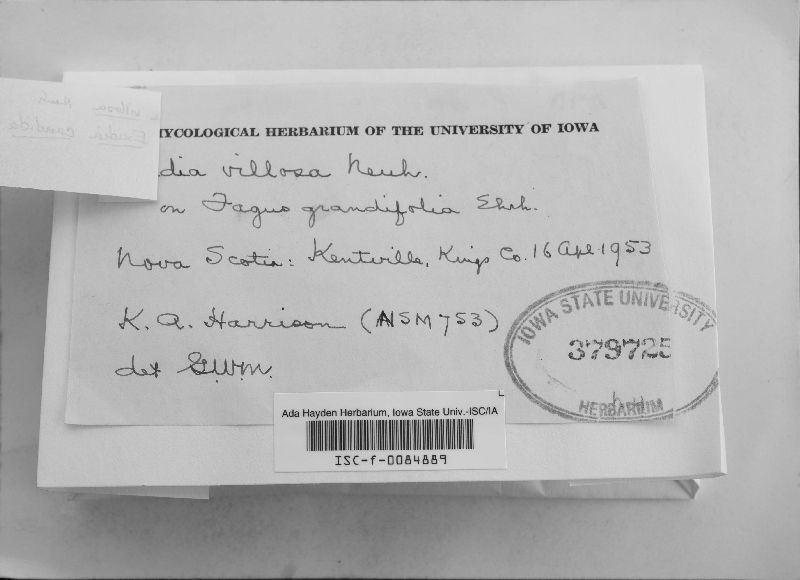 MYCOLOGICAL HERBARIUM OF THE UNIVERSITY OF IOWA
dia villosa Neuh.
on Fagus grandifolia Ehrh.
Nova Scotia: Kentville, Kings Co. 16 Apr. 1953
K. A. Harrison (NSM 753)
det G.W.M.
IOWA STATE UNIVERSITY
379725
HERBARIUM
Ada Hayden Herbarium, Iowa State Univ.-ISC/IA
ISC-f-0084889
villosa Neuh
Exidia candida